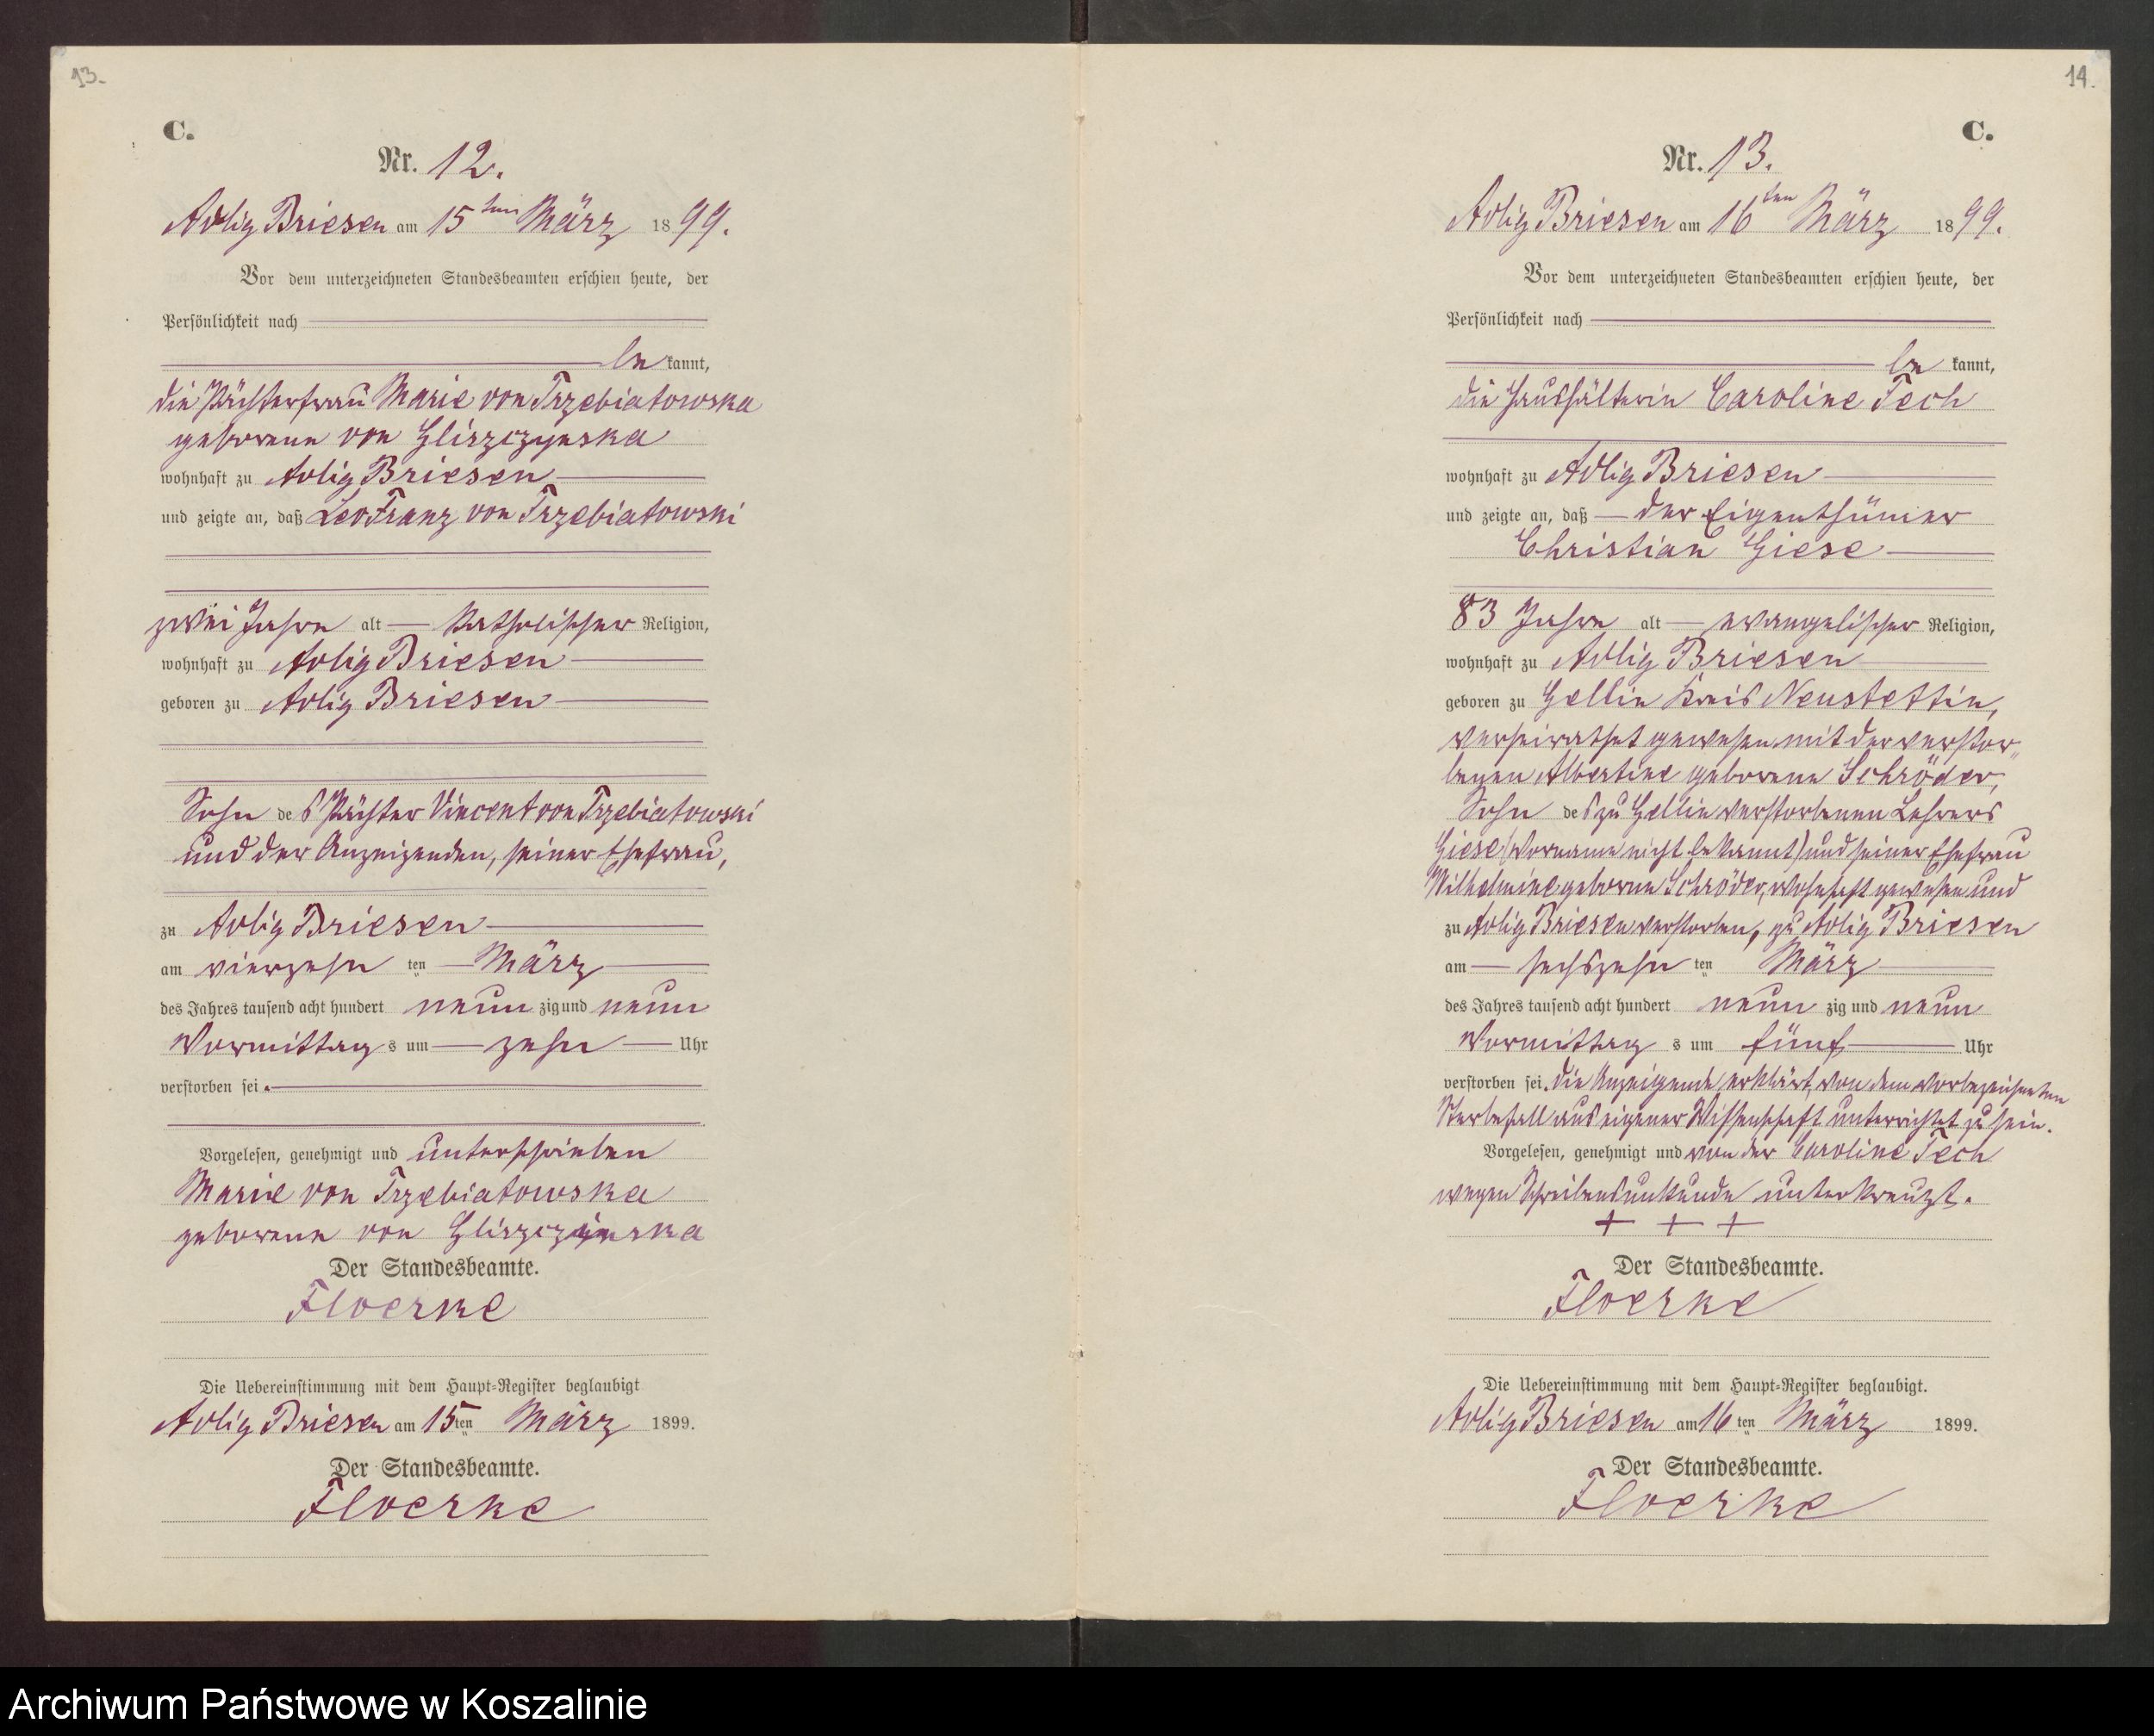 13.
C.
Nr. 12.
Adlig Briesen am 15ten März 1899.
Vor dem unterzeichneten Standesbeamten erschien heute, der
Persönlichkeit nach
bekannt,
die Pächterfrau Marie von Trzebiatowska
geborene von Gliszczynska
wohnhaft zu Adlig Briesen
und zeigte an, daß Leo Franz von Trzebiatowski
zwei Jahre alt katholischer Religion,
wohnhaft zu Adlig Briesen
geboren zu Adlig Briesen
Sohn des Pächter Vincent von Trzebiatowski
und der Anzeigenden, seiner Ehefrau,
zu Adlig Briesen
am vierzehn ten März
des Jahres tausend acht hundert neun zig und neun
Vormittags um zehn Uhr
verstorben sei.
Vorgelesen, genehmigt und unterschrieben
Marie von Trzebiatowska
geborene von Gliszczynska
Der Standesbeamte.
Floerke
Die Uebereinstimmung mit dem Haupt-Register beglaubigt
Adlig Briesen am 15ten März 1899.
Der Standesbeamte.
Floerke
14.
C.
Nr. 13.
Adlig Briesen am 16ten März 1899.
Vor dem unterzeichneten Standesbeamten erschien heute, der
Persönlichkeit nach
bekannt,
die Haushälterin Caroline Tech
wohnhaft zu Adlig Briesen
und zeigte an, daß der Eigenthümer
Christian Giese
83 Jahre alt evangelischer Religion,
wohnhaft zu Adlig Briesen
geboren zu Gellin Kreis Neustettin,
verheirathet gewesen mit der verstor„
benen Albertine geborene Schröder,
Sohn des zu Gellin verstorbenen Lehrers
Giese (Vorname nicht bekannt) und seiner Ehefrau
Wilhelmine geborene Schröder, wohnhaft gewesen und
zu Adlig Briesen verstorben, zu Adlig Briesen
am sechszehn ten März
des Jahres tausend acht hundert neun zig und neun
Vormittags um fünf Uhr
verstorben sei. Die Anzeigende erklärt, von dem vorbezeichneten
Sterbefall aus eigener Wissenschaft unterrichtet zu sein.
Vorgelesen, genehmigt und von der Caroline Tech
wegen Schreibensunkunde unterkreuzt.
+ + +
Der Standesbeamte.
Floerke
Die Uebereinstimmung mit dem Haupt-Register beglaubigt.
Adlig Briesen am 16ten März 1899.
Der Standesbeamte.
Floerke
Archiwum Państwowe w Koszalinie